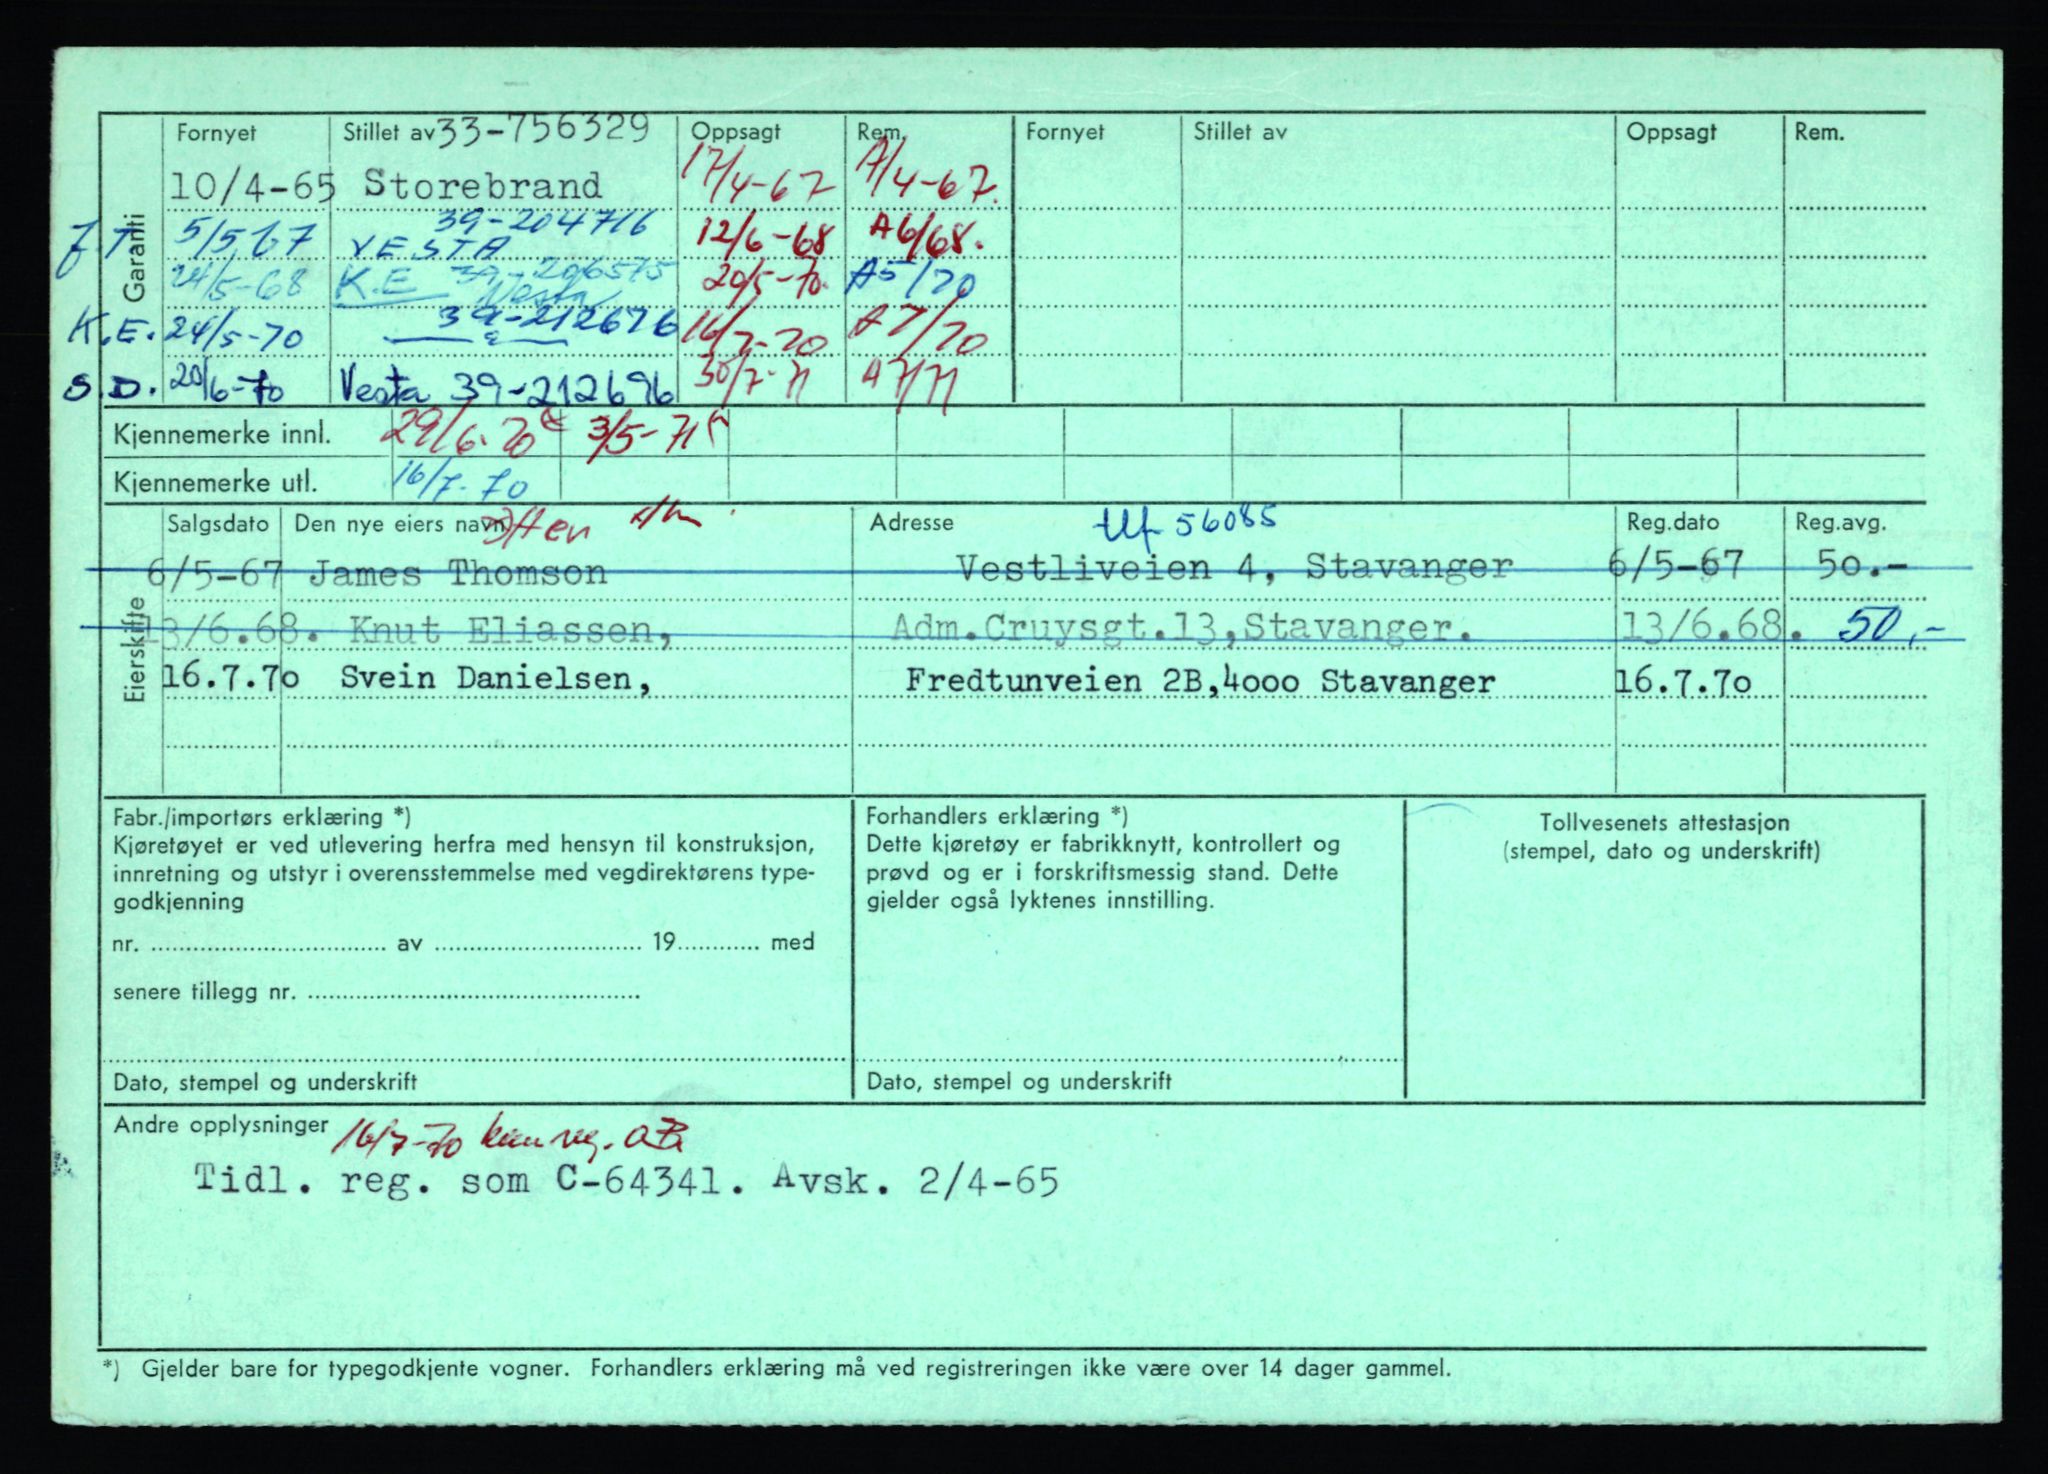 Fornyet Stillet av 33-756329 Oppsagt Rem. Fornyet Stillet av Oppsagt Rem.
Garanti
10/4-65 Storebrand 17/4-67 A/4-67.
39-204716
5/5 67 VESTA 12/6-68 A6/68.
24/5-68 K.E 39-206575 Vesta 20/5-70. A5/70
K.E. 24/5-70 39-212676 16/7-70 A7/70
S.D. 20/6-70 Vesta 39-212696 30/7-71 A7/71
Kjennemerke innl. 29/6-70 3/5-71
Kjennemerke utl. 16/7-70
Eierskifte
Salgsdato Den nye eiers navn Adresse tlf 56085 Reg.dato Reg.avg.
6/5-67 James Thomson Vestliveien 4, Stavanger 6/5-67 50.-
13/6.68. Knut Eliassen, Adm.Cruysgt.13,Stavanger. 13/6.68. 50,-
16.7.70 Svein Danielsen, Fredtunveien 2B,4000 Stavanger 16.7.70
Fabr./importørs erklæring *)
Kjøretøyet er ved utlevering herfra med hensyn til konstruksjon,
innretning og utstyr i overensstemmelse med vegdirektørens type-
godkjenning
nr. .................... av .................... 19............ med
senere tillegg nr. ....................
Dato, stempel og underskrift
Forhandlers erklæring *)
Dette kjøretøy er fabrikknytt, kontrollert og
prøvd og er i forskriftsmessig stand. Dette
gjelder også lyktenes innstilling.
Dato, stempel og underskrift
Tollvesenets attestasjon
(stempel, dato og underskrift)
Andre opplysninger 16/7-70
Tidl. reg. som C-64341. Avsk. 2/4-65
*) Gjelder bare for typegodkjente vogner. Forhandlers erklæring må ved registreringen ikke være over 14 dager gammel.